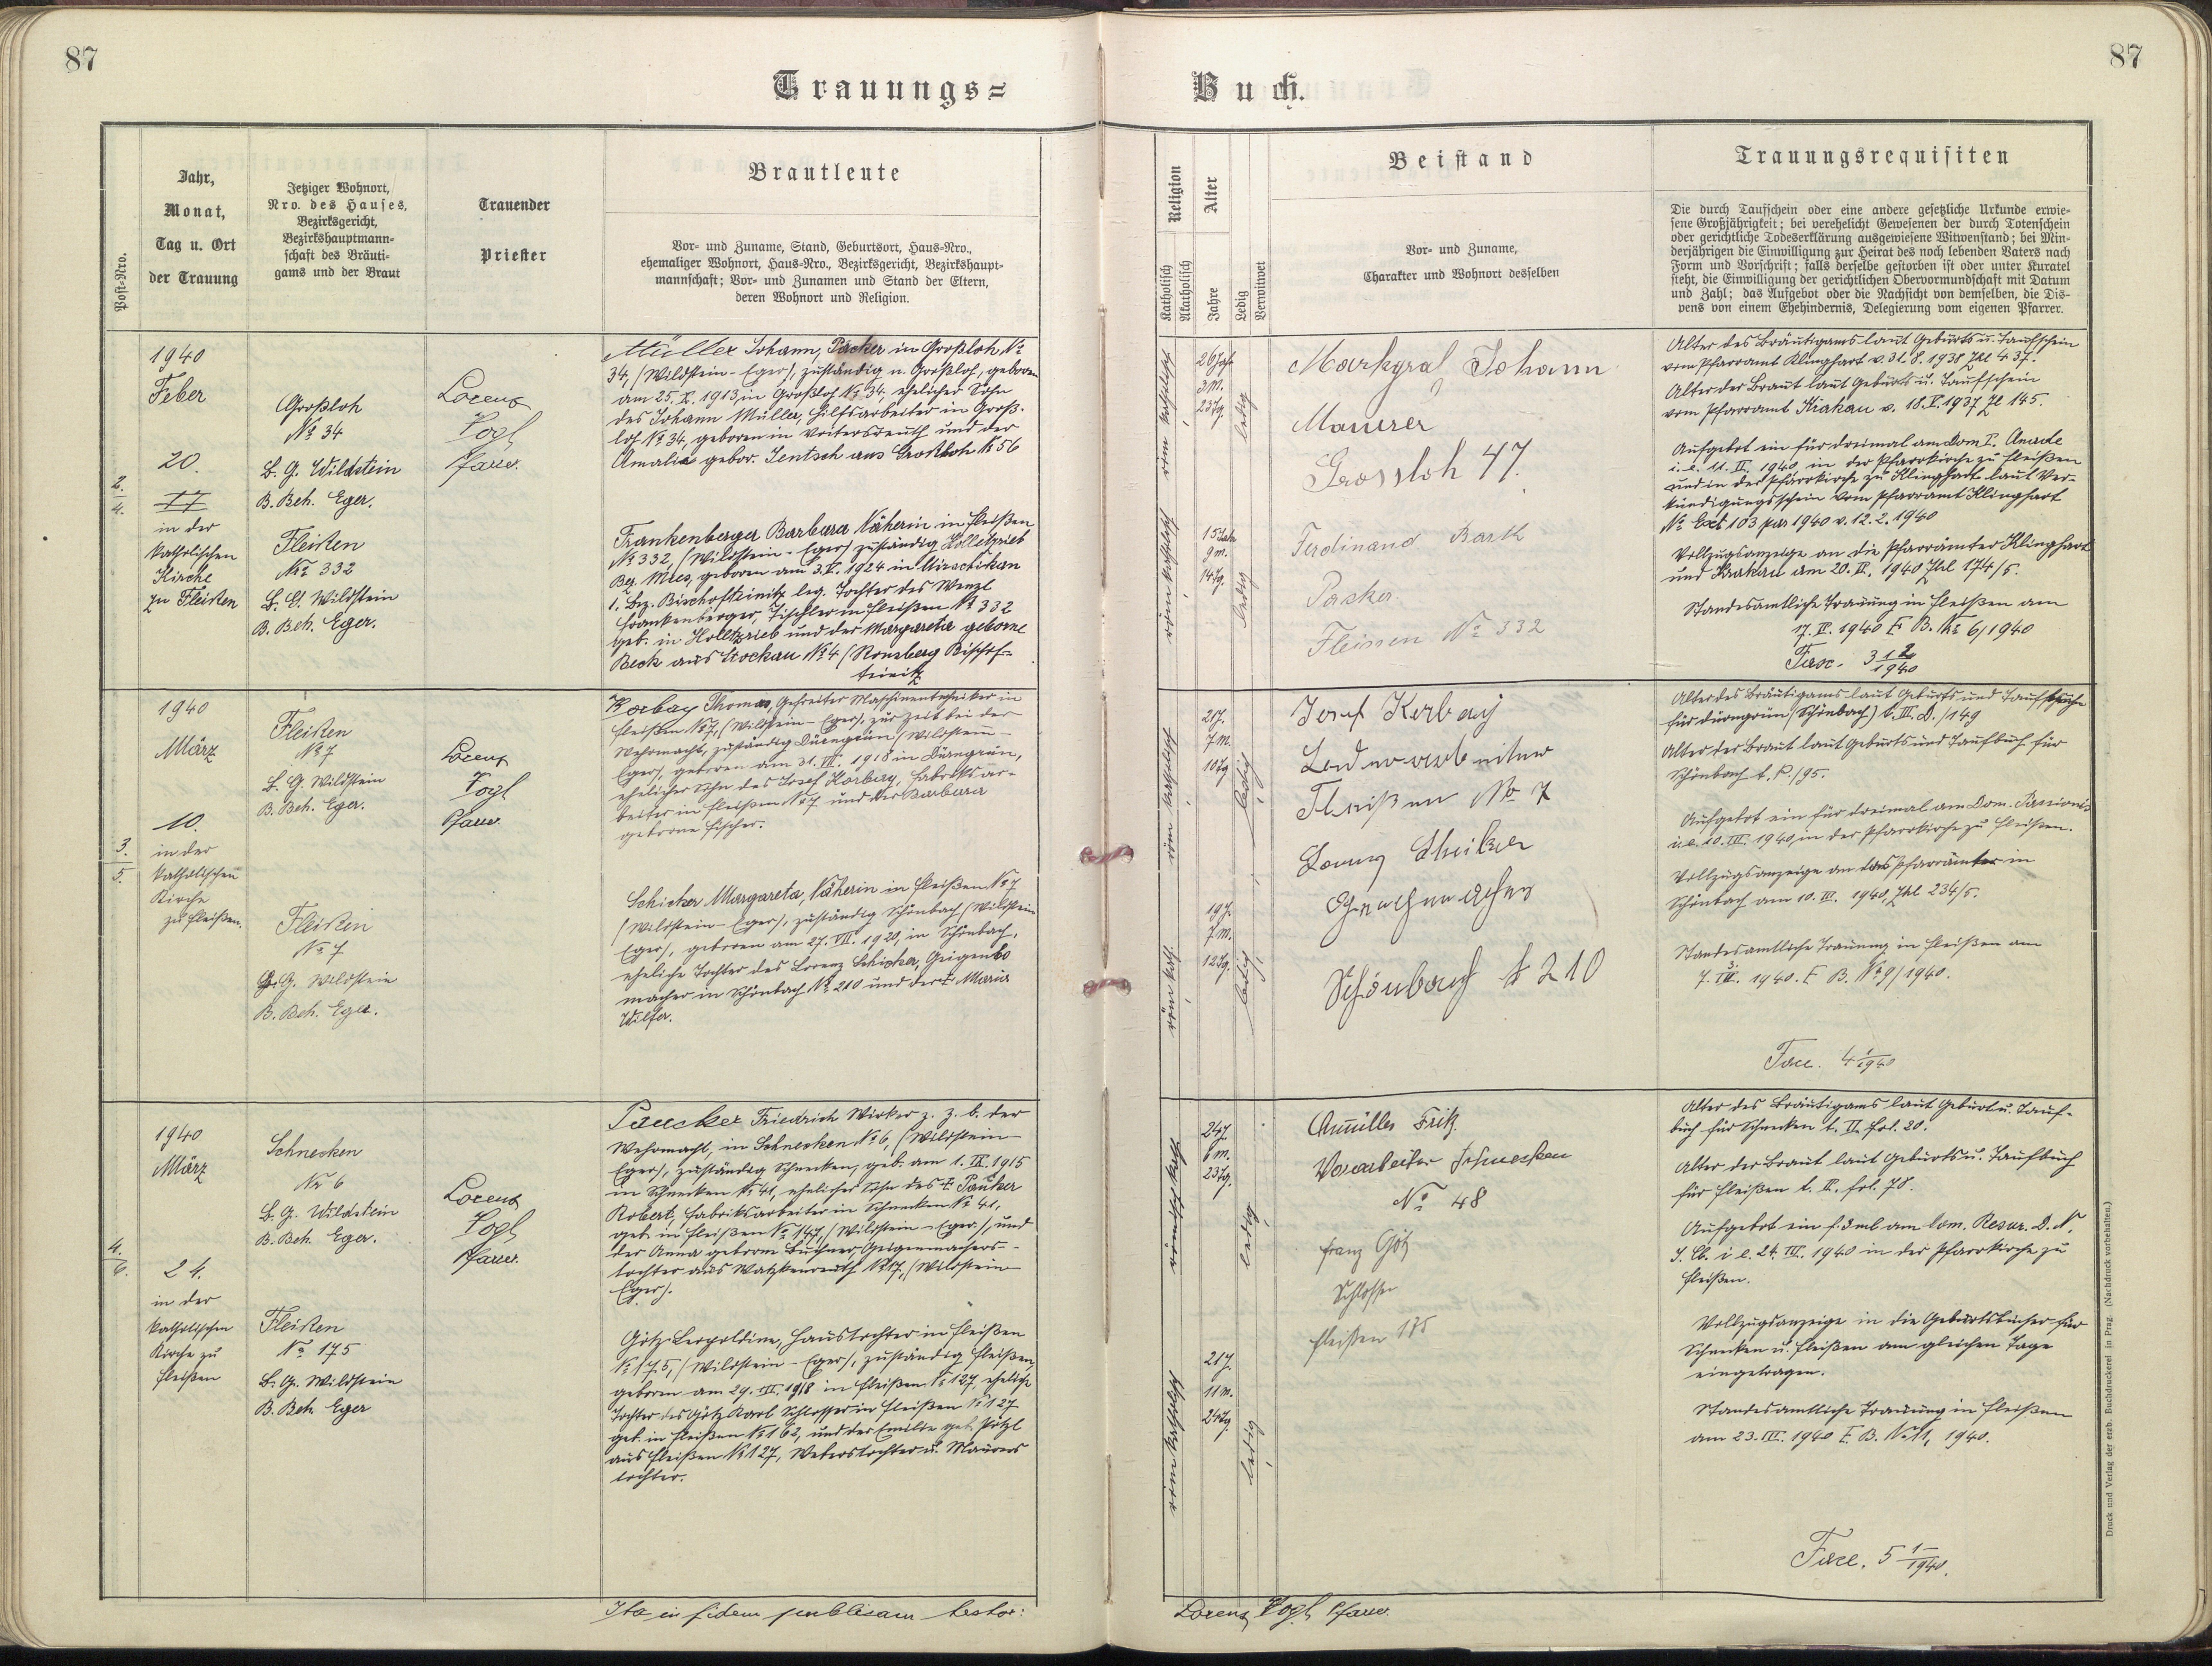 87
Trauungs=
Jahr,
Monat,
Tag u. Ort
der Trauung
Jetziger Wohnort,
Nro. des Hauses,
Bezirksgericht,
Bezirkshauptmann-
schaft des Bräuti-
gams und der Braut
Trauender
Priester
Brautleute
Post-Nro.
Vor- und Zuname, Stand, Geburtsort, Haus-Nro.,
ehemaliger Wohnort, Haus-Nro., Bezirksgericht, Bezirkshaupt-
mannschaft; Vor- und Zunamen und Stand der Eltern,
deren Wohnort und Religion.
2.
4.
1940
Feber
20.
17
in der
katholischen
Kirche
zu Fleißen
Großloh
No 34
B. G. Wildstein
B. Beh. Eger.
Fleißen
No 332
B. G. Wildstein
B. Beh. Eger.
Lorenz
Vogl
Pfarrer.
Müller Johann, Packer in Großloh No
34, (Wildstein-Eger), zuständig n. Großloh, geboren
am 25. X. 1913, in Großloh No 34, ehelicher Sohn
des Johann Müller, Hilfsarbeiter in Groß-
loh No 34, geboren in Voitersreuth und der
Amalia gebor. Jentsch aus Großloh No 56
Frankenberger Barbara Näherin in Fleißen
No 332, (Wildstein-Eger) zuständig Holletzrieb
Bez. Mies, geboren am 3. V. 1924 in
1, Bez. Bischofteinitz leg. Tochter des Wenzl
Frankenberger, Tischler in Fleißen No 332
geb. in Holletzrieb und der Margareta geborne
Beck aus Stockau No 4 (Ronsberg Bischof-
teinitz
3.
5.
1940
März
10.
in der
katholischen
Kirche
zu Fleißen.
Fleißen
No 7
B. G. Wildstein
B. Beh. Eger.
Fleißen
No 7
B. G. Wildstein
B. Beh. Eger.
Lorenz
Vogl
Pfarrer
Korbay Thomas, Gefreiter Maschinentechniker in
Fleißen No 7, (Wildstein-Eger), zur Zeit bei der
Wehrmacht, zuständig Dürngrün (Wildstein-
Eger), geboren am 31. VII. 1918 in Dürngrün,
ehelicher Sohn des Josef Korbay, Fabriksar-
beiter in Fleißen No 7 und der Barbara
geborne Fischer.
Schicker Margareta, Näherin in Fleißen No 7
(Wildstein-Eger), zuständig Schönbach (Wildstein
Eger), geboren am 27. VII. 1920, in Schönbach,
eheliche Tochter des Lorenz Schicker, Geigenbo
macher in Schönbach No 210 und der Maria
Wilfer.
4.
6.
1940
März
24.
in der
katholischen
Kirche zu
Fleißen
Schnecken
No 6
B. G. Wildstein
B. Beh. Eger.
Fleißen
No 175
B. G. Wildstein
B. Beh. Eger
Lorenz
Vogl
Pfarrer.
Paucker Friedrich Wirker z. Z. b. der
Wehrmacht, in Schnecken No 6, (Wildstein
Eger), zuständig Schnecken, geb. am 1. IX. 1915
in Schnecken No 41, ehelicher Sohn des † Pauker
Robert, Fabriksarbeiter in Schnecken No 41,
geb. in Fleißen No 147, (Wildstein-Eger), und
der Anna geborne Buchner, Geigenmachers-
tochter aus Watzkenreuth No 17, (Wildstein-
Eger).
Götz Leopoldine, Haustochter in Fleißen
No 175, (Wildstein-Eger), zuständig Fleißen,
geboren am 29. III. 1918 in Fleißen No 127, eheliche
Tochter des Götz Karl Schlosser in Fleißen No 127
geb. in Fleißen No 162, und der Emilie geb. Pötzl
aus Fleißen No 127, Weberstochter u. Maurers
tochter.
Ita in fidem publicam testor:
87
Buch.
Religion
Katholisch
Akatholisch
Alter
Jahre
Ledig
Verwitwet
Beistand
Vor- und Zuname,
Charakter und Wohnort desselben
Trauungsrequisiten
Die durch Taufschein oder eine andere gesetzliche Urkunde erwie-
sene Großjährigkeit; bei verehelicht Gewesenen der durch Totenschein
oder gerichtliche Todeserklärung ausgewiesene Witwenstand; bei Min-
derjährigen die Einwilligung zur Heirat des noch lebenden Vaters nach
Form und Vorschrift; falls derselbe gestorben ist oder unter Kuratel
steht, die Einwilligung der gerichtlichen Obervormundschaft mit Datum
und Zahl; das Aufgebot oder die Nachsicht von demselben, die Dis-
pens von einem Ehehindernis, Delegierung vom eigenen Pfarrer.
röm. katholisch
26 Jah
3 M.
23 Tg.
ledig
röm. katholisch
15 Jah
9 M.
14 Tg.
ledig
Markgraf Johann
Maurer
Grossloh 47.
Ferdinand Bartl
Packer.
Fleissen No 332
Alter des Bräutigams laut Geburts u. Taufschein
vom Pfarramt Klinghart v. 31. 8. 1938 Zhl 437.
Alter der Braut laut Geburts u. Taufschein
vom Pfarramt Krakau v. 18. X. 1937 Zl 145.
Aufgebot ein für dreimal am Dom I.
i. e. 11. II. 1940, in der Pfarrkirche zu Fleißen
und in der Pfarrkirche zu Klinghart laut Ver-
kündigungsschein vom Pfarramt Klinghart
No Exh 103 pur 1940 v. 12. 2. 1940
Vollzugsanzeige an die Pfarrämter Klinghart
und Krakau am 20. II. 1940 Zhl 174/5.
Standesamtliche Trauung in Fleißen am
17. II. 1940 F. B. No 6/1940
Fasc. 3 1 2/1940
röm. katholisch
21 J.
7 M.
10 Tg
ledig
röm kath
19 J.
7 M.
12 Tg.
ledig
Josef Korbay
Fleißen No 7
Lorenz Schicker
Schönbach No 210
Alter des Bräutigams laut Geburts und Taufbuche
für Dürngrün (Schönbach) t. III. D. /149
Alter der Braut laut Geburts und Taufbuch für
Schönbach t. P. /95.
Aufgebot ein für dreimal am Dom. Passionis
i. e. 10. III. 1940 in der Pfarrkirche zu Fleißen.
Vollzugsanzeige an das Pfarrämter in
Schönbach am 10. III. 1940, Zhl. 234/5.
Standesamtliche Trauung in Fleißen am
7. III. 1940. F B. No 9/1940.
Fasc. 4 1/1940
römisch kath
24 J.
6 M.
23 Tg.
ledig
röm katholisch
21 J.
11 M.
24 Tg.
ledig
Anmüller Fritz
Vorarbeiter Schnecken
No 48
Franz Götz
Schlosser
Fleißen 175
Alter des Bräutigams laut Geburt u. Tauf-
buch für Schnecken t. II. fol. 20.
Alter der Braut laut Geburts u. Taufbuch
für Fleißen t. X. fol. 78.
Aufgebot ein f. 3 ml am Dom. Resur. D. N.
J. Ch. i. e. 24. III. 1940 in der Pfarrkirche zu
Fleißen.
Vollzugsanzeige in die Geburtsbücher für
Schnecken u. Fleißen am gleichen Tage
eingetragen.
Standesamtliche Trauung in Fleißen
am 23. III. 1940 F. B. No 11, 1940.
Fasc. 5 1/1940.
Lorenz Vogl, Pfarrer.
Druck und Verlag der erzb. Buchdruckerei in Prag. (Nachdruck vorbehalten.)